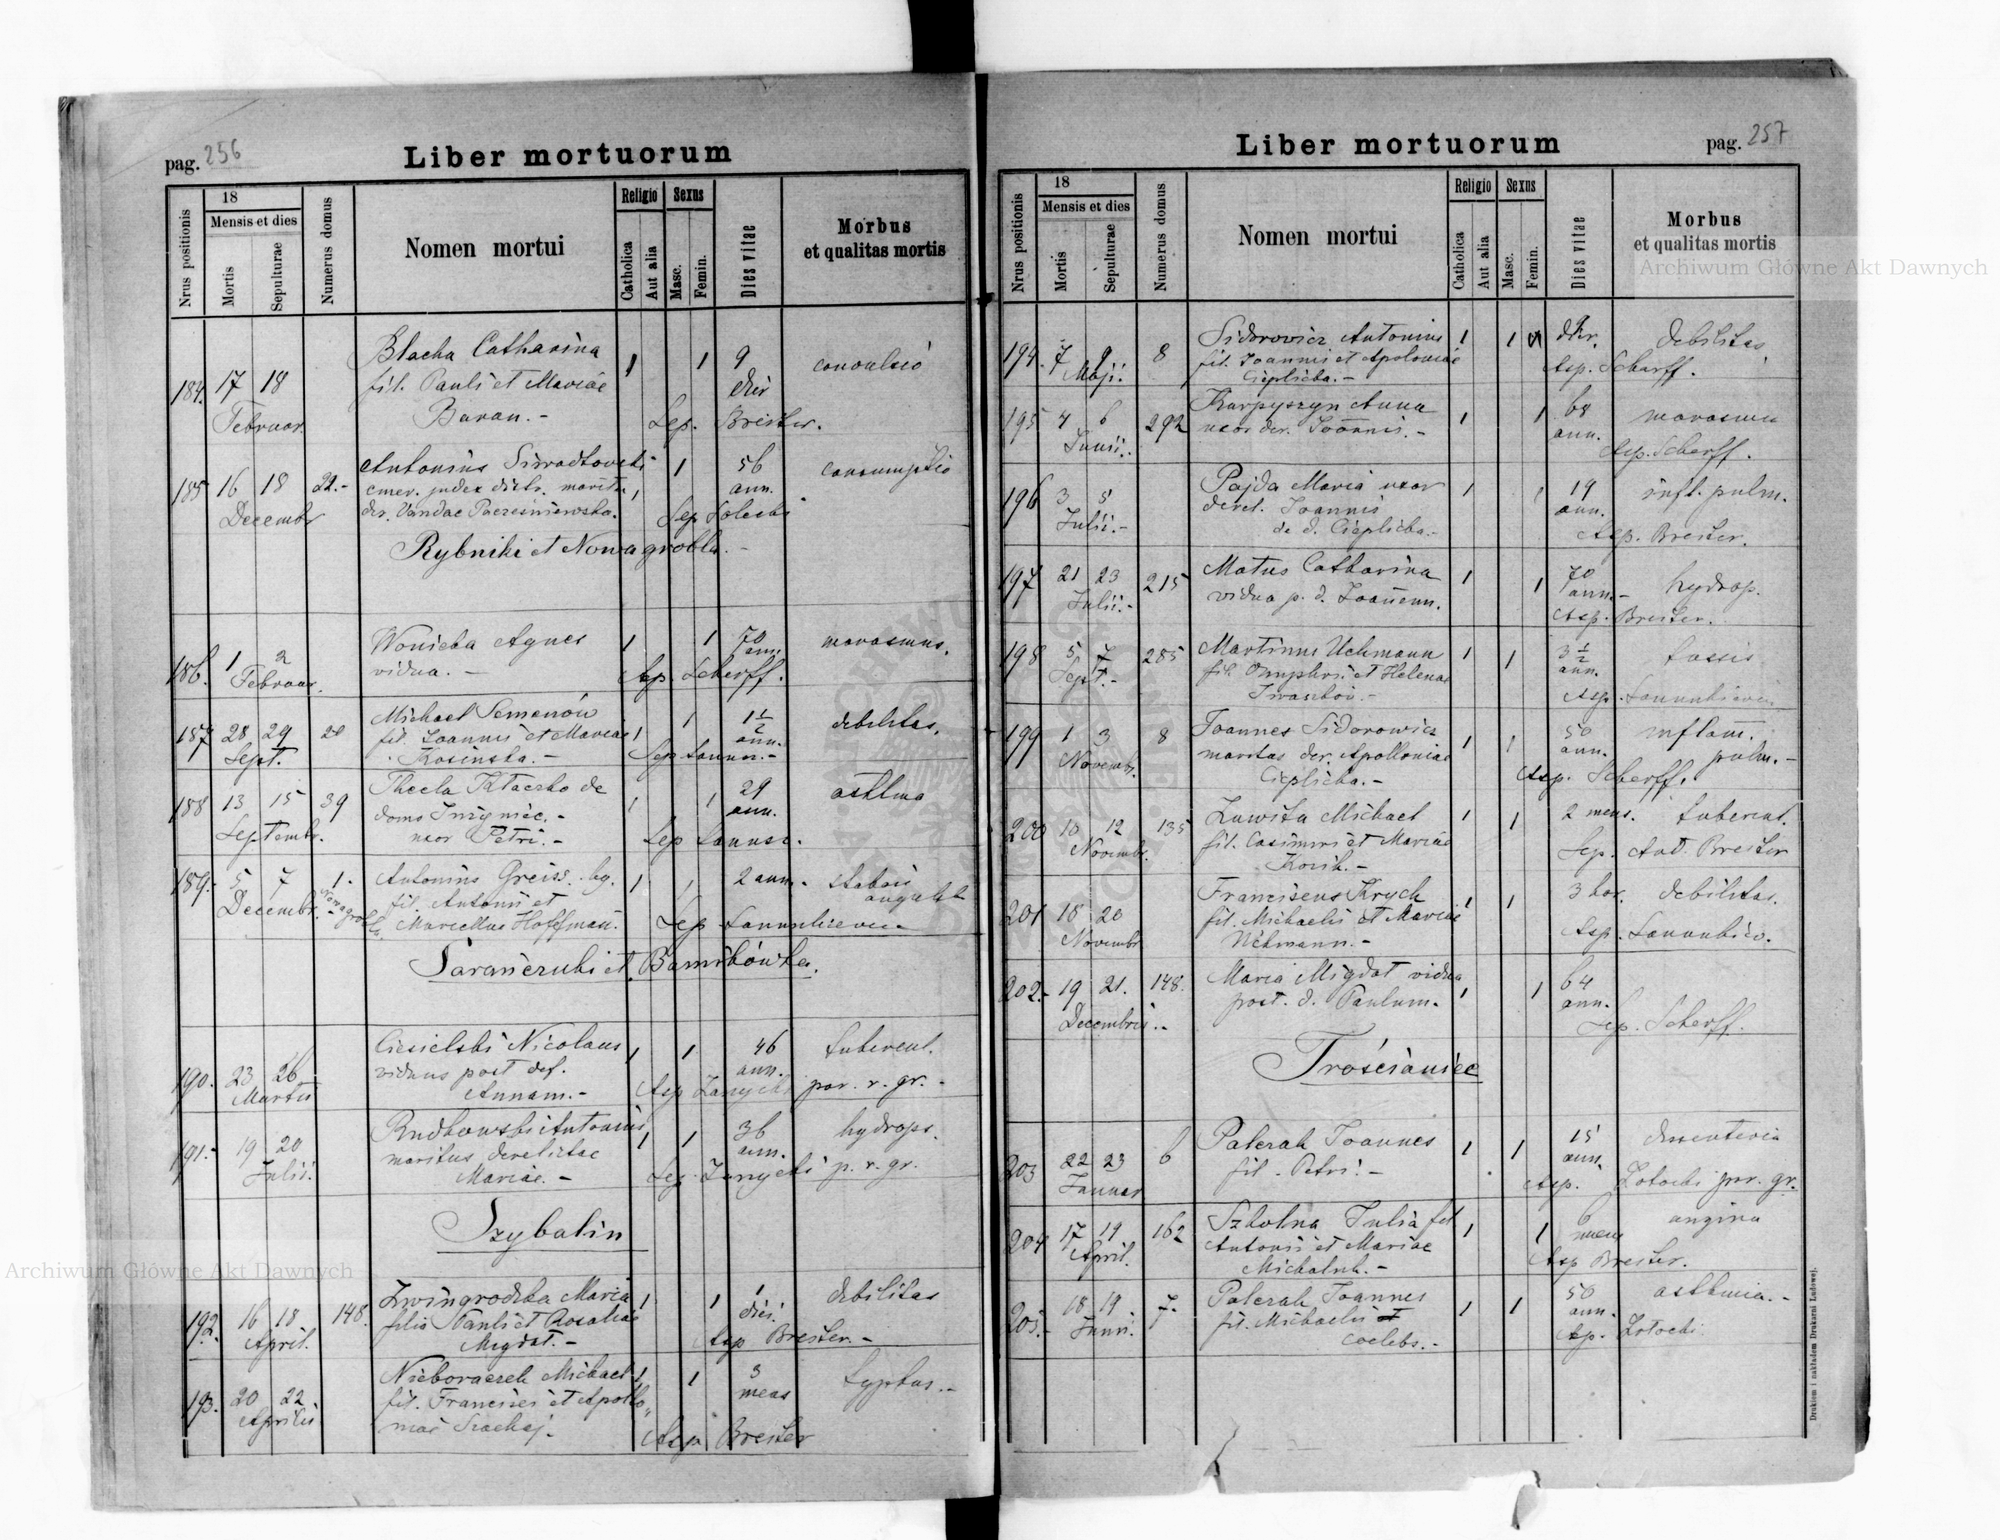 pag. 256
Liber mortuorum
Nrus positionis
18
Mensis et dies
Mortis
Sepulturae
Numerus domus
Nomen mortui
Religio
Catholica
Aut alia
Sexus
Masc.
Femin.
Dies vitae
Morbus
et qualitas mortis
184. 17 18
Februar.
Blacha Catharina
fil. Pauli et Mariae
Baran.-
1 1 9
dier
convulsio
Sep. Breiter.
185 16 18 22.-
Decembr
Antonius
emer. judex distr. marit.
der. Vandae
1 1 56
ann.
consumptio
Sep
Rybniki et Nowagrobla.-
186. 1 2
Februar.
Wonicka Agnes
vidua.-
1 1 70
ann.
marasmus.
Asp. Scherff.
187 28 29 20
Sept.
Michael Semenów
fil. Joannis et Mariae
Kosinska.-
1 1 1½
ann.
debilitas.
Sep
188 13 15 39
Septembr.
Thecla de
domo
uxor Petri.-
1 1 29
ann.
asthma
Sep
189.- 5 7 1.-
Decembr.
Nowagrobla
Antonius Greiss.
fil. Antonii et
Hoffmann.
1 1 2 ann.-
Sep
Sarańczuki et Bamibówka.
190. 23 26
Martii
Ciesielski Nicolaus
viduus post def.
Annam.-
1 1 46
ann.
tubercul.
Asp par. r. gr.-
191.- 19 20
Julii.
Rudkowski Antonius
maritus derelictae
Mariae.-
1 1 36
ann.
hydrops.
Sep. p. r. gr.
Szybalin
192. 16 18 148.
April.
Zwingrodzka Maria
filia Pauli et Rosaliae
Migdat.-
1 1 1
diei.
debilitas
Asp Breiter.-
193. 20 22
Aprilis
Nieboraczek Michael
fil. Francisci et Apollo
niae
1 1 3
mens
typhus.-
Asp Breiter
pag. 257
Liber mortuorum
Nrus positionis
18
Mensis et dies
Mortis
Sepulturae
Numerus domus
Nomen mortui
Religio
Catholica
Aut alia
Sexus
Masc.
Femin.
Dies vitae
Morbus
et qualitas mortis
194. 7 9 8
Maji.
Sidorowicz Antonius
fil. Joannis et Apoloniae
Cieplicka.-
1 1
debilitas
Asp. Scherff.
195 4 6 292
Junii.
Karpyszyn Anna
uxor der. Joannis.-
1 1 68
ann.
marasmus
Asp. Scherff.
196 3 5
Julii.-
Pajda Maria uxor
derel. Joannis
de d. Cieplicka.-
1 1 19
ann.
infl. pulm.
Asp. Breiter.
197 21 23 215
Julii.-
Matus Catharina
vidua p. d. Joannem.
1 1 70
ann.-
hydrop.
Asp. Breiter.
198 5 7 285
Sept.-
Martinus Uchmann
fil. Onuphri et Helenae
Iwaskow.-
1 1 3½
ann.
tussis
Asp.
199 1 3 8
Novembr.
Joannes Sidorowicz
maritus der. Apolloniae
Cieplicka.-
1 1 50
ann.
inflam.
pulm.-
Asp. Scherff.
200 10 12 135
Novembr.
Michael
fil. Casimiri et Mariae
1 1 2 mens. tubercul.
Sep. Ant. Breiter
201 18 20
Novembr
Franciscus Krych
fil. Michaelis et Mariae
Uchmann.-
1 1 3 hor. debilitas.
Asp.
202.- 19 21. 148.
Decembris.-
Maria Migdat vidua
post. d. Paulum.-
1 1 64
ann.
Sep. Scherff.
Trościaniec
203 22 23 6
Januar
Palcrah Joannes
fil. Petri.-
1 1 15
ann.
dissenteria
Asp. par. gr.
204 17 19 162
April.
Szkolna Julia fil
Antonii et Mariae
Michaluk.-
1 1 6
mens
angina
Asp Breiter.
205.- 18 19 7.-
Junii.
Palcrah Joannes
fil. Michaelis
coelebs.-
1 1 50
ann.
asthmia.-
Asp.
Drukiem i nakładem Drukarni Ludowej.
Archiwum Główne Akt Dawnych
Archiwum Główne Akt Dawnych